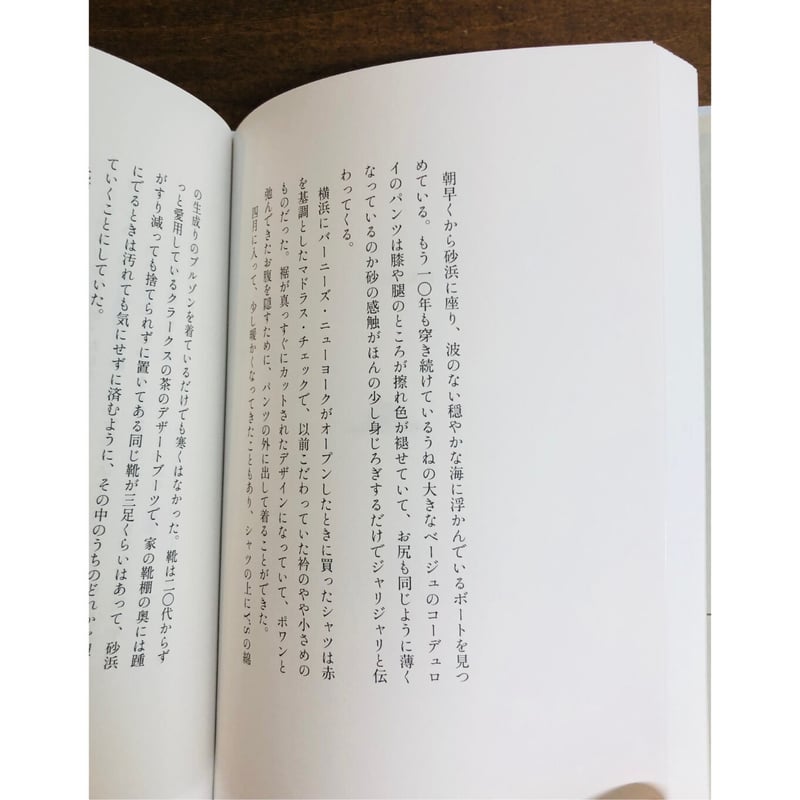 朝早くから砂浜に座り、波のない穏やかな海に浮かんでいるボートを見つ
めている。もう一〇年も穿き続けているうねの大きなベージュのコーデュロ
イのパンツは膝や腿のところが擦れ色が褪せていて、お尻も同じように薄く
なっているのか砂の感触がほんの少し身じろぎするだけでジャリジャリと伝
わってくる。
横浜にバーニーズ・ニューヨークがオープンしたときに買ったシャツは赤
を基調としたマドラス・チェックで、以前こだわっていた衿のやや小さめの
ものだった。裾が真っすぐにカットされたデザインになっていて、ポワンと
弛んできたお腹を隠すために、パンツの外に出して着ることができた。
四月に入って、少し暖かくなってきたこともあり、シャツの上にY'Sの綿
の生成りのブルゾンを着ているだけでも寒くはなかった。靴は二〇代からず
っと愛用しているクラークスの茶のデザートブーツで、家の靴棚の奥には踵
がすり減っても捨てられずに置いてある同じ靴が三足くらいはあって、砂浜
にでるときは汚れても気にせずに済むように、その中のうちのどれかを
ていくことにしていた。